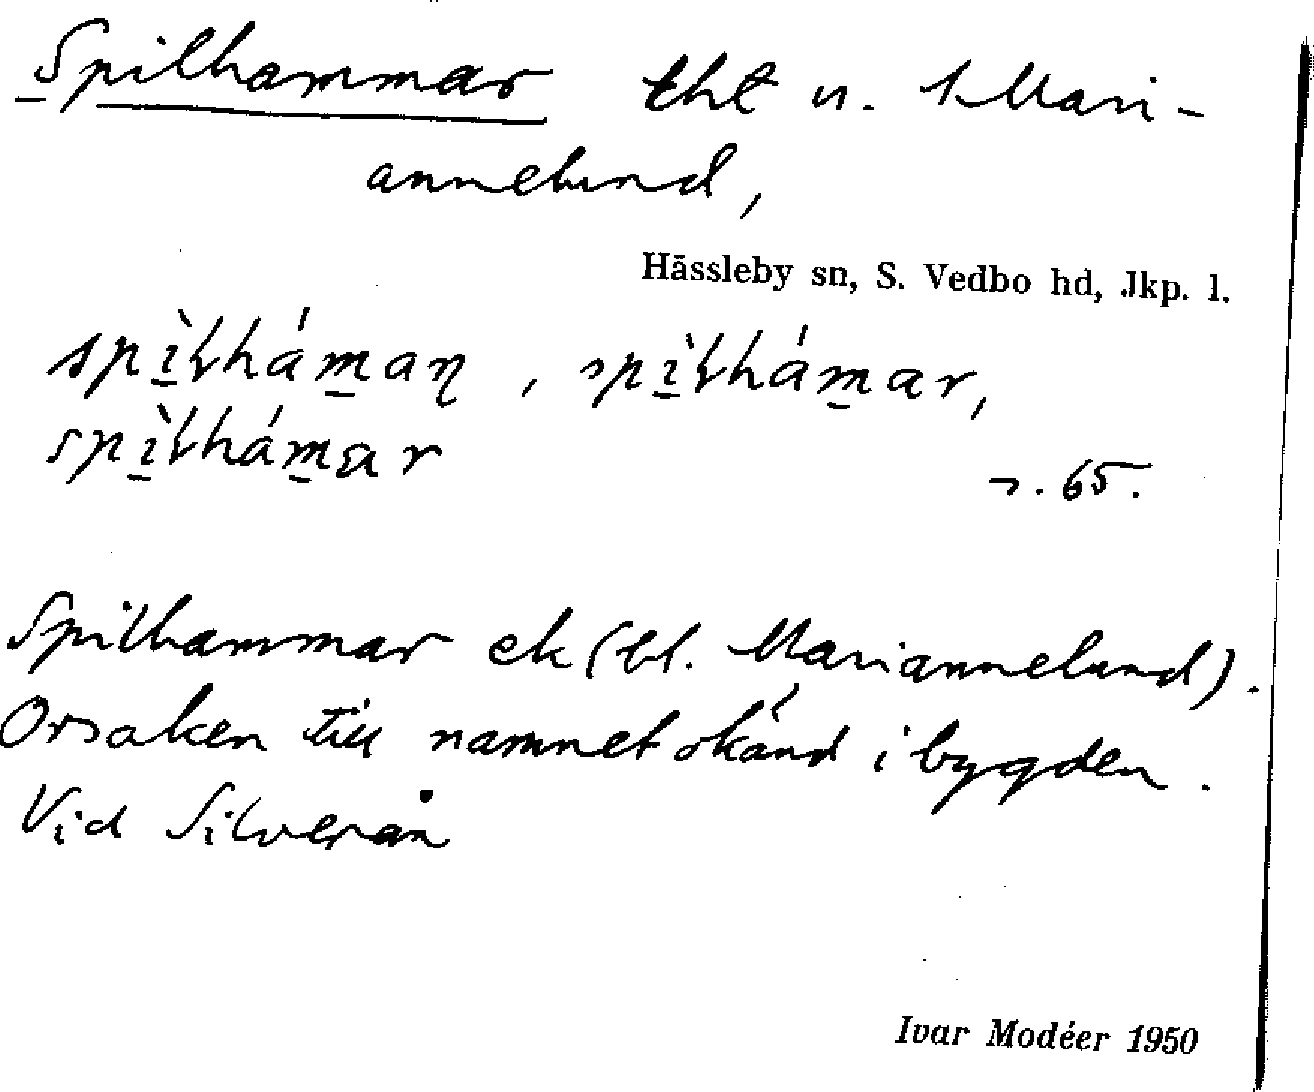 Spilhammar tht u. 1 Mari-
annelund,
Hässleby sn, S. Vedbo hd, Jkp. l.
spìɫháma , spìɫhámar,
spìɫhámar
s. 65.
Spilhammar ek (bl. Mariannelund).
Orsaken till namnet okänd i bygden.
Vid Silverån
Ivar Modéer 1950